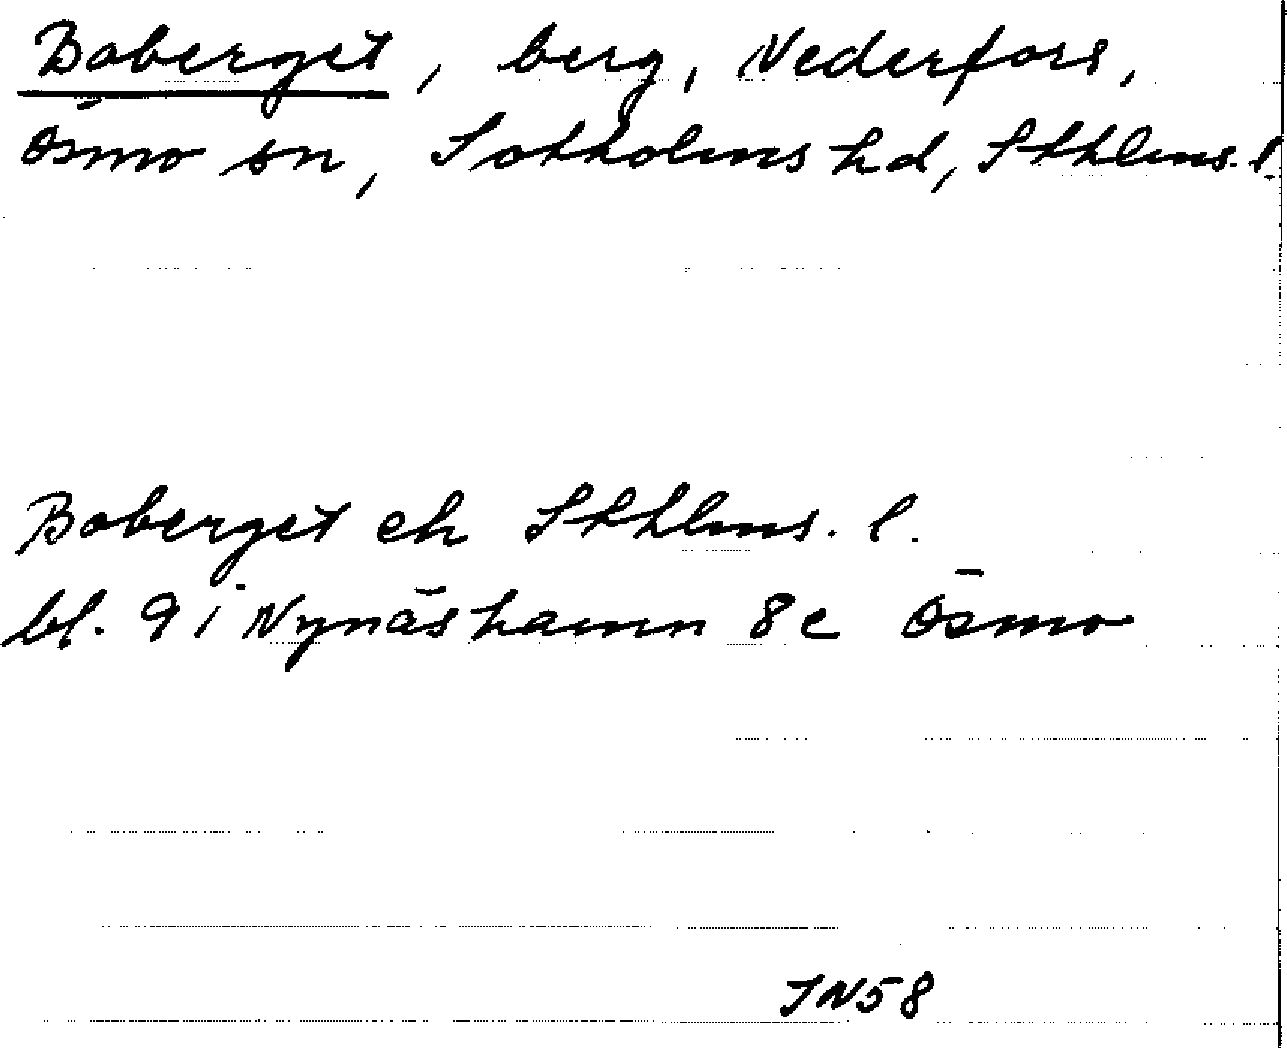 Boberget, berg, Nederfors,
Ösmo sn, Sotholms hd, Sthlms. l.
Boberget ek Sthlms. l.
bl. 9 i Nynäshamn 8c Ösmo
IN58